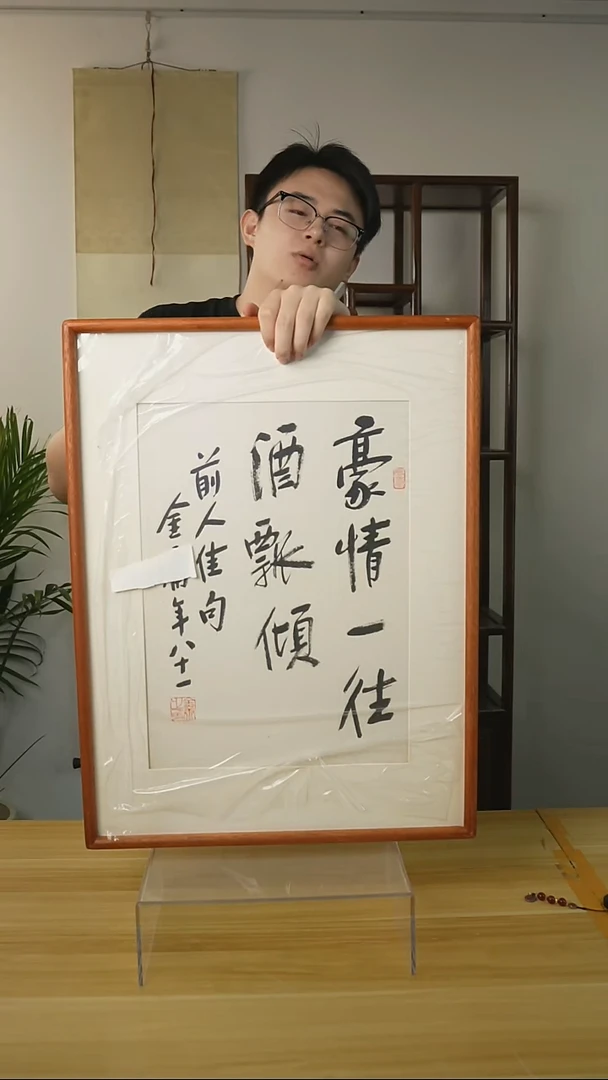 豪情一往
酒瓢傾
前人佳句
金年八十一